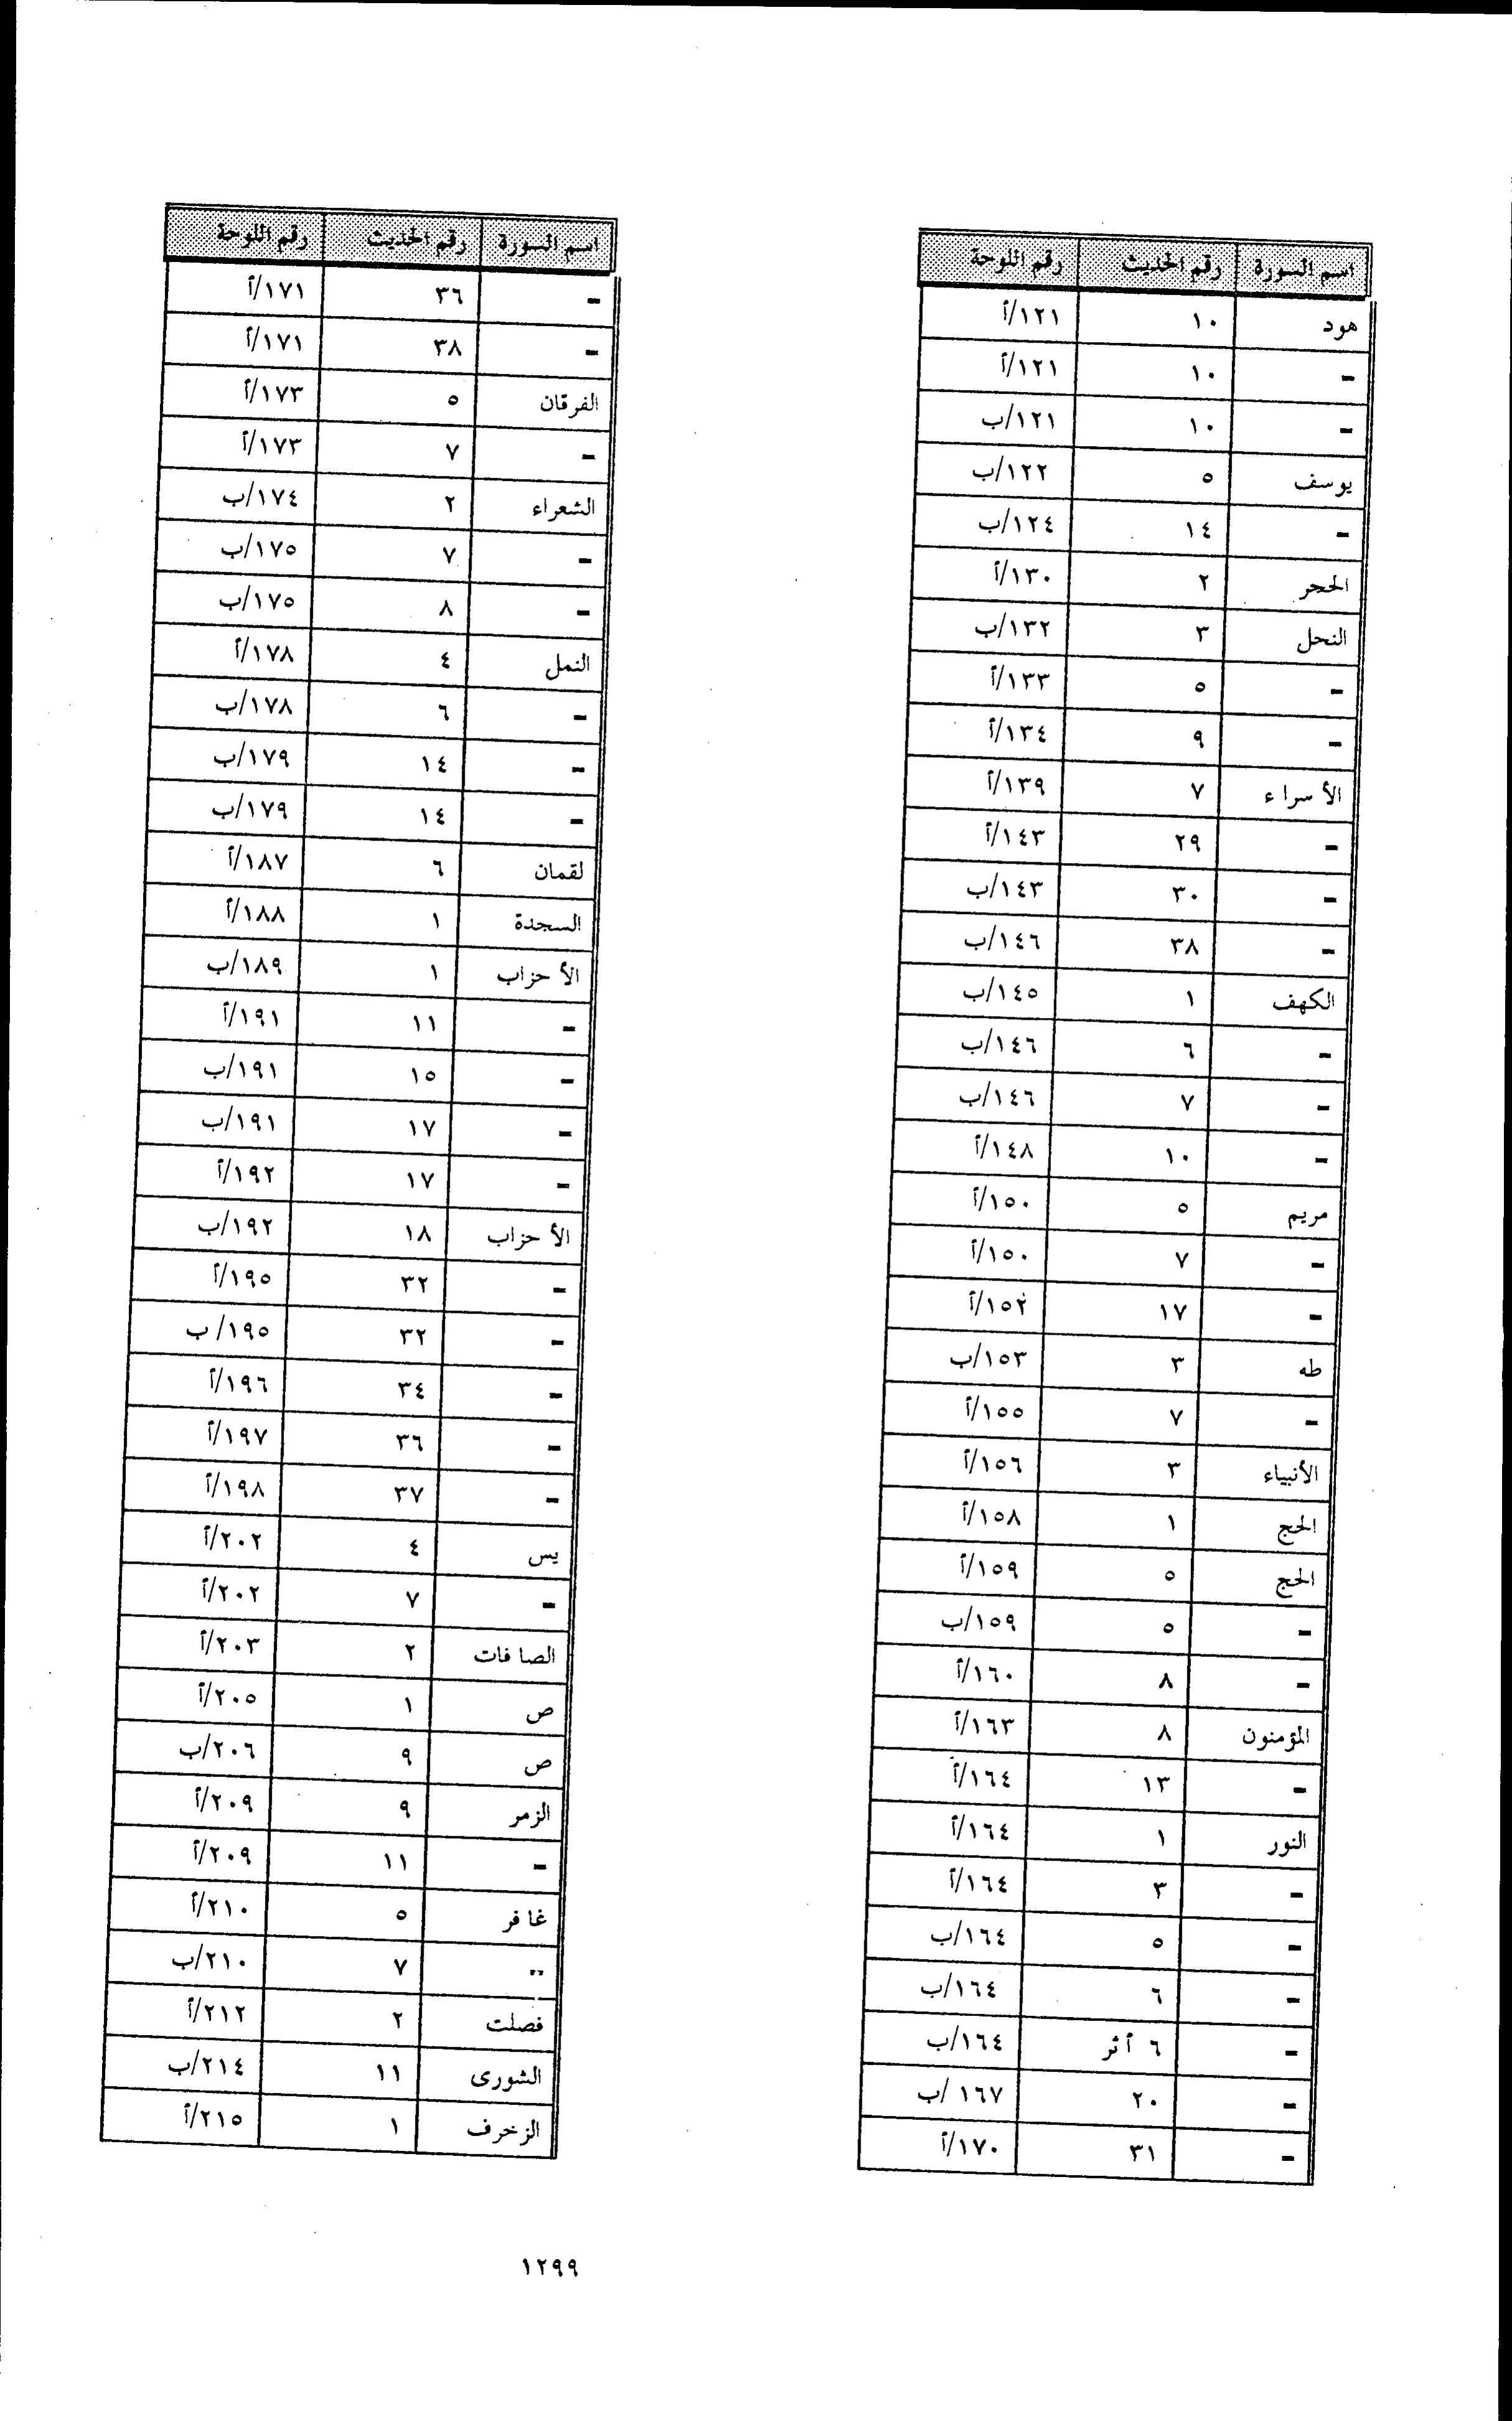 اسم السورة رقم الحديث رقم اللوحة
هود ١٠ ١٢١/أ
- ١٠ ١٢١/أ
- ١٠ ١٢١/ب
يوسف ٥ ١٢٢/ب
- ١٤ ١٢٤/ب
الحجر ٢ ١٣٠/أ
النحل ٣ ١٣٢/ب
- ٥ ١٣٣/أ
- ٩ ١٣٤/أ
الأسراء ٧ ١٣٩/أ
- ٢٩ ١٤٣/أ
- ٣٠ ١٤٣/ب
- ٣٨ ١٤٦/ب
الكهف ١ ١٤٥/ب
- ٦ ١٤٦/ب
- ٧ ١٤٦/ب
- ١٠ ١٤٨/أ
مريم ٥ ١٥٠/أ
- ٧ ١٥٠/أ
- ١٧ ١٥٢/أ
طه ٣ ١٥٣/ب
- ٧ ١٥٥/أ
الأنبياء ٣ ١٥٦/أ
الحج ١ ١٥٨/أ
الحج ٥ ١٥٩/أ
- ٥ ١٥٩/ب
- ٨ ١٦٠/أ
المؤمنون ٨ ١٦٣/أ
- ١٣ ١٦٤/أ
النور ١ ١٦٤/أ
- ٣ ١٦٤/أ
- ٥ ١٦٤/ب
- ٦ ١٦٤/ب
- ٦ أثر ١٦٤/ب
- ٢٠ ١٦٧/ب
- ٣١ ١٧٠/أ
اسم السورة رقم الحديث رقم اللوحة
- ٣٦ ١٧١/أ
- ٣٨ ١٧١/أ
الفرقان ٥ ١٧٣/أ
- ٧ ١٧٣/أ
الشعراء ٢ ١٧٤/ب
- ٧ ١٧٥/ب
- ٨ ١٧٥/ب
النمل ٤ ١٧٨/أ
- ٦ ١٧٨/ب
- ١٤ ١٧٩/ب
- ١٤ ١٧٩/ب
لقمان ٦ ١٨٧/أ
السجدة ١ ١٨٨/أ
الأحزاب ١ ١٨٩/ب
- ١١ ١٩١/أ
- ١٥ ١٩١/ب
- ١٧ ١٩١/ب
- ١٧ ١٩٢/أ
الأحزاب ١٨ ١٩٢/ب
- ٣٢ ١٩٥/أ
- ٣٢ ١٩٥/ب
- ٣٤ ١٩٦/أ
- ٣٦ ١٩٧/أ
- ٣٧ ١٩٨/أ
يس ٤ ٢٠٢/أ
- ٧ ٢٠٢/أ
الصافات ٢ ٢٠٣/أ
ص ١ ٢٠٥/أ
ص ٩ ٢٠٦/ب
الزمر ٩ ٢٠٩/أ
- ١١ ٢٠٩/أ
غافر ٥ ٢١٠/أ
- ٧ ٢١٠/ب
فصلت ٢ ٢١٢/أ
الشورى ١١ ٢١٤/ب
الزخرف ١ ٢١٥/أ
١٢٩٩